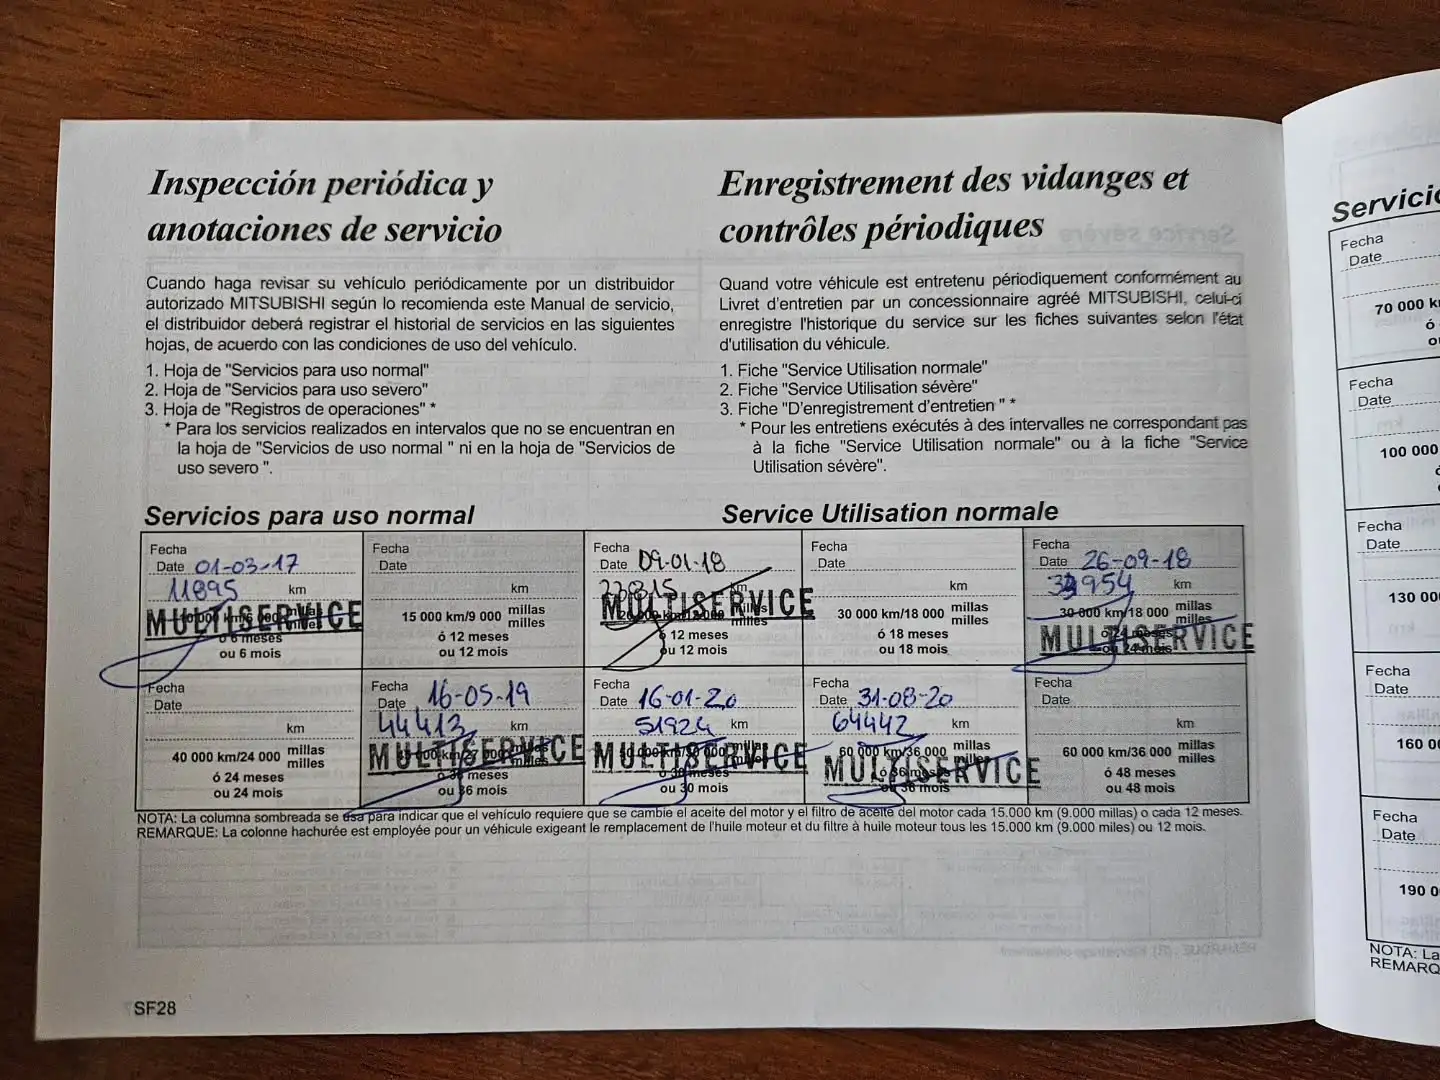 Inspección periódica y
anotaciones de servicio
Cuando haga revisar su vehículo periódicamente por un distribuidor
autorizado MITSUBISHI según lo recomienda este Manual de servicio,
el distribuidor deberá registrar el historial de servicios en las siguientes
hojas, de acuerdo con las condiciones de uso del vehículo.
1. Hoja de "Servicios para uso normal"
2. Hoja de "Servicios para uso severo"
3. Hoja de "Registros de operaciones" *
* Para los servicios realizados en intervalos que no se encuentran en
la hoja de "Servicios de uso normal " ni en la hoja de "Servicios de
uso severo ".
Enregistrement des vidanges et
contrôles périodiques
Quand votre véhicule est entretenu périodiquement conformément au
Livret d'entretien par un concessionnaire agréé MITSUBISHI, celui-ci
enregistre l'historique du service sur les fiches suivantes selon l'état
d'utilisation du véhicule.
1. Fiche "Service Utilisation normale"
2. Fiche "Service Utilisation sévère"
3. Fiche "D'enregistrement d'entretien " *
* Pour les entretiens exécutés à des intervalles ne correspondant pas
à la fiche "Service Utilisation normale" ou à la fiche "Service
Utilisation sévère".
Servicios para uso normal
Service Utilisation normale
Fecha
Date 01-03-17
11895 km
MULTISERVICE
ó 6 meses
ou 6 mois
Fecha
Date
km
15 000 km/9 000 millas
milles
ó 12 meses
ou 12 mois
Fecha
Date 09-01-18
km
MULTISERVICE
ó 12 meses
ou 12 mois
Fecha
Date
km
30 000 km/18 000 millas
milles
ó 18 meses
ou 18 mois
Fecha
Date 26-09-18
km
30 000 km/18 000 millas
milles
MULTISERVICE
ou 24 mois
Fecha
Date
km
40 000 km/24 000 millas
milles
ó 24 meses
ou 24 mois
Fecha
Date 16-05-19
44413 km
MULTISERVICE
meses
ou 36 mois
Fecha
Date 16-01-20
51924 km
MULTISERVICE
ó 30 meses
ou 30 mois
Fecha
Date 31-08-20
64442 km
60 000 km/36 000 millas
milles
MULTISERVICE
ou 36 mois
Fecha
Date
km
60 000 km/36 000 millas
milles
ó 48 meses
ou 48 mois
NOTA: La columna sombreada se usa para indicar que el vehículo requiere que se cambie el aceite del motor y el filtro de aceite del motor cada 15.000 km (9.000 millas) o cada 12 meses.
REMARQUE: La colonne hachurée est employée pour un véhicule exigeant le remplacement de l'huile moteur et du filtre à huile moteur tous les 15.000 km (9.000 miles) ou 12 mois.
SF28
Servicio
Fecha
Date
70 000 k
ó
Fecha
Date
100 000
Fecha
Date
130 00
Fecha
Date
160 0
Fecha
Date
190 0
NOTA: La
REMARQ